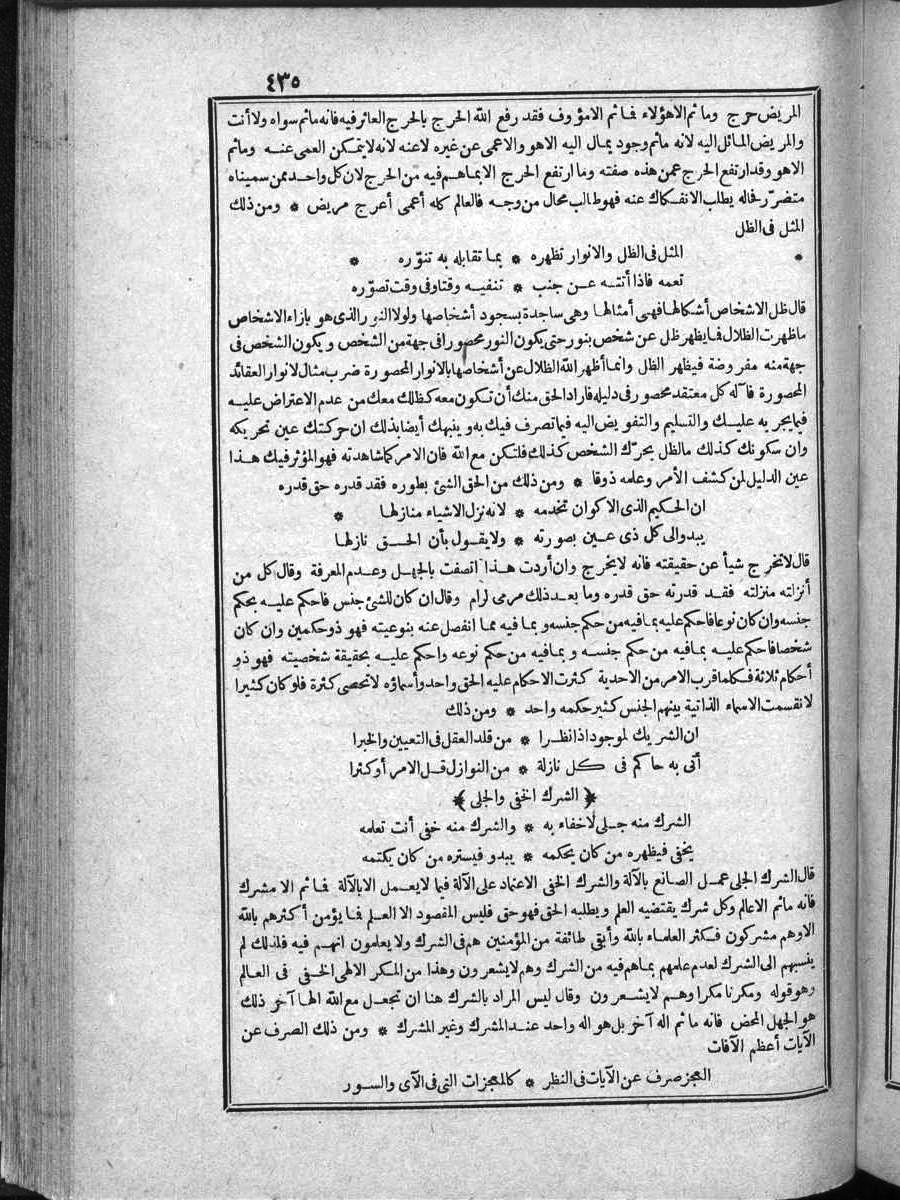 ٤٣٥
المريض حرج وما ثم الا هؤلاء فما ثم الا مؤوف فقد رفع الله الحرج بالحرج العائر فيه فانه ماثم سواه ولا أنت
والمريض المائل اليه لانه ماثم وجود يمال اليه الا هو والاعمى عن غيره لا عنه لانه لا يتمكن العمى عنه وماثم
الا هو وقد ارتفع الحرج عمن هذه صفته وما ارتفع الحرج الا بما هم فيه من الحرج لان كل واحد ممن سميناه
متضرّر فماله يطلب الانفكاك عنه فهو طالب محال من وجه فالعالم كله أعمى أعرج مريض * ومن ذلك
المثل فى الظل
المثل فى الظل والانوار تظهره * بما تقابله به تنوّره *
تعمه فاذا أتته عن جنب * تنفيه وقتا وفى وقت تصوّره *
قال ظل الاشخاص أشكالها فهى أمثالها وهى ساجدة بسجود أشخاصها ولولا النور الذى هو بازاء الاشخاص
ما ظهرت الظلال فما يظهر ظل عن شخص بنور حتى يكون النور محصورا فى جهة من الشخص ويكون الشخص فى
جهة منه مفروضة فيظهر الظل وانما أظهر الله الظلال عن أشخاصها بالانوار المحصورة ضرب مثال لانوار العقائد
المحصورة فآله كل معتقد محصور فى دليله فاراد الحق منك أن تكون معه كظلك معك من عدم الاعتراض عليه
فيما يجريه عليك والتسليم والتفويض اليه فيما تصرف فيك به وينبهك أيضا بذلك ان حركتك عين تحريكه
وان سكونك كذلك ما الظل يحرّك الشخص كذلك فلتكن مع الله فان الامر كما شاهدته فهو المؤثر فيك هذا
عين الدليل لمن كشف الأمر وعلمه ذوقا * ومن ذلك من الحق الشئ بطوره فقد قدره حق قدره
ان الحكيم الذى الاكوان تخدمه * لانه نزل الاشياء منازلها *
يبدو الى كل ذى عين بصورته * ولا يقول بأن الحق نازلها
قال لا تخرج شيأ عن حقيقته فانه لا يخرج وان أردت هذا اتصفت بالجهل وعدم المعرفة وقال كل من
أنزلته منزلته فقد قدرته حق قدره وما بعد ذلك مرمى لرام وقال ان كان للشئ جنس فاحكم عليه بحكم
جنسه وان كان نوعا فاحكم عليه بما فيه من حكم جنسه وبما فيه مما انفصل عنه بنوعيته فهو ذو حكمين وان كان
شخصا فاحكم عليه بما فيه من حكم جنسه وبما فيه من حكم نوعه واحكم عليه بحقيقة شخصيته فهو ذو
أحكام ثلاثة فكلما قرب الامر من الاحدية كثرت الاحكام عليه الحق واحد وأسماؤه لا تحصى كثرة فلو كان كثيرا
لانقسمت الاسماء الذاتية بينهم الجنس كثير حكمه واحد * ومن ذلك
ان الشريك لموجود اذا نظرا * من قلد العقل فى التعيين والخبرا
أتى به حاكم فى كل نازلة * من النوازل قل الامر أو كثرا
﴿ الشرك الخفى والجلى ﴾
الشرك منه جلى لا خفاء به * والشرك منه خفى أنت تعلمه
يخفى فيظهره من كان يحكمه * يبدو فيستره من كان يكتمه
قال الشرك الجلى عمل الصانع بالآلة والشرك الخفى الاعتماد على الآلة فيما لا يعمل الا بالآلة فما ثم الا مشرك
فانه ماثم الا عالم وكل شرك يقتضيه العلم ويطلبه الحق فهو حق فليس المقصود الا العلم فما يؤمن أكثرهم بالله
الا وهم مشركون فكثر العلماء بالله وأبقى طائفة من المؤمنين هم فى الشرك ولا يعلمون انهم فيه فلذلك لم
ينسبهم الى الشرك لعدم علمهم بما هم فيه من الشرك وهم لا يشعرون وهذا من المكر الالهى الخفى فى العالم
وهو قوله ومكرنا مكرا وهم لا يشعرون وقال ليس المراد بالشرك هنا ان تجعل مع الله الها آخر ذلك
هو الجهل المحض فانه ماثم اله آخر بل هو اله واحد عند المشرك وغير المشرك * ومن ذلك الصرف عن
الآيات أعظم الآفات
العجز صرف عن الآيات فى النظر * كالمعجزات التى فى الآى والسور